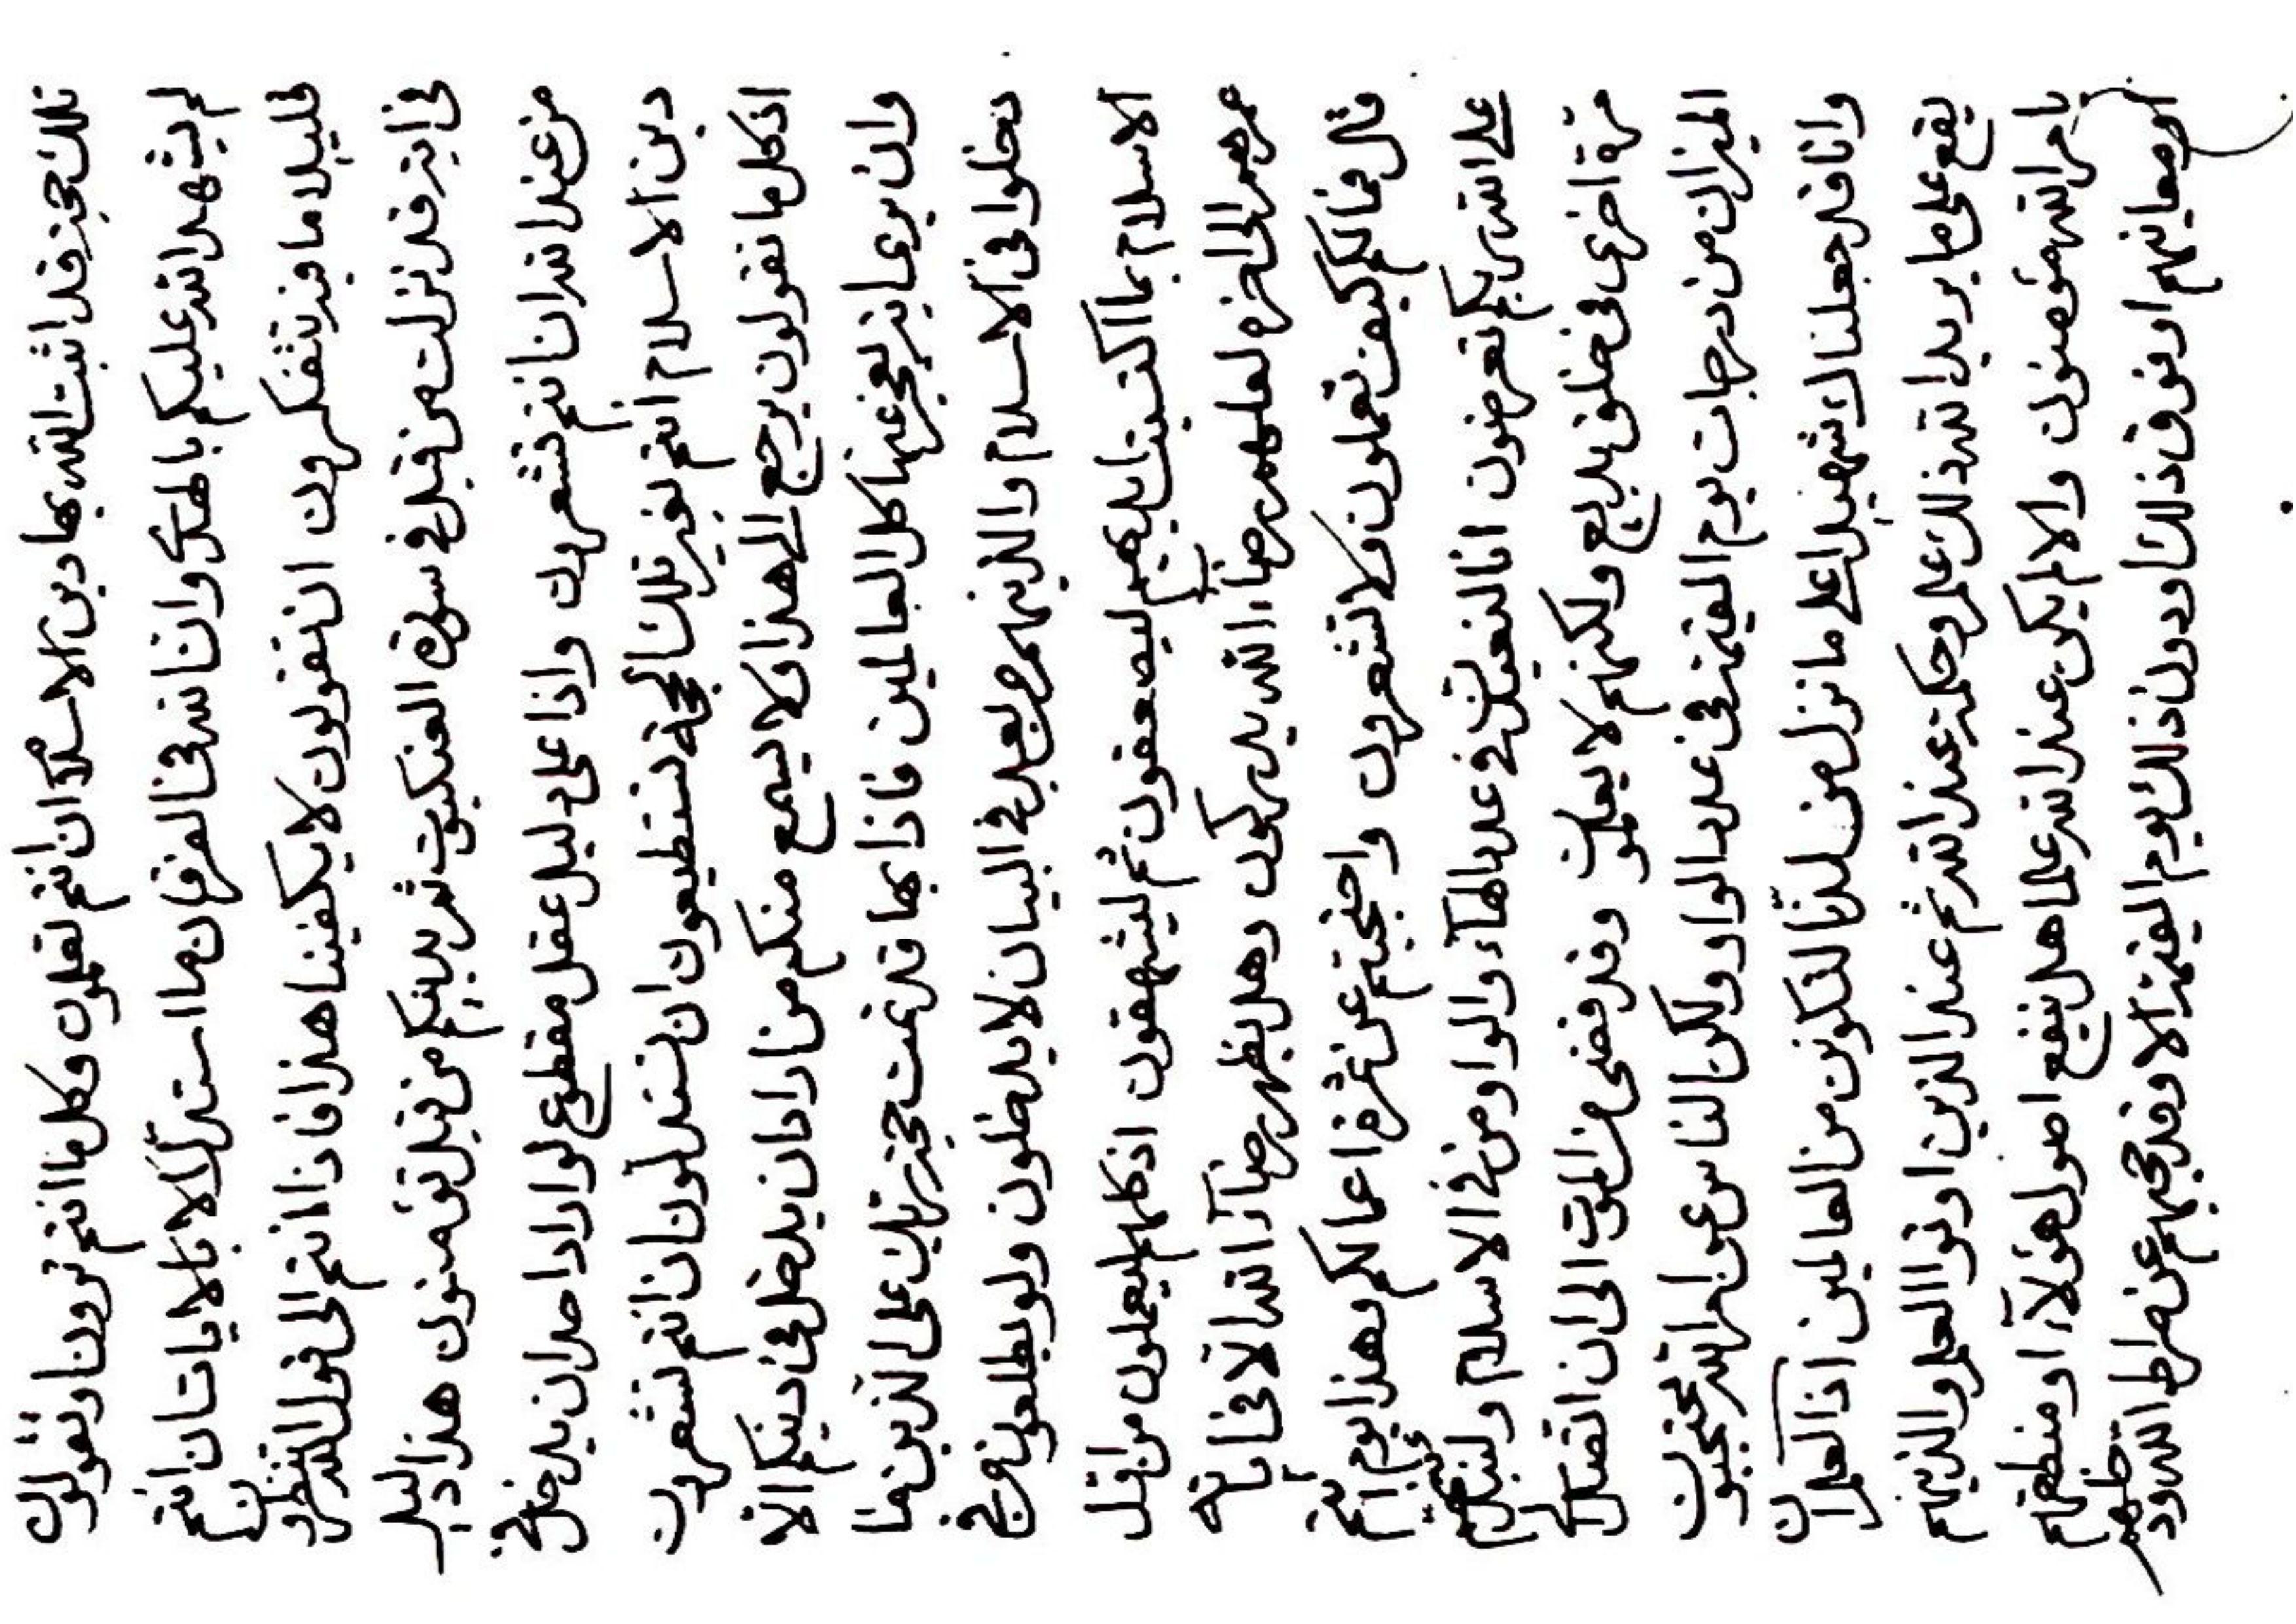 تلك حجة قد اثبت الله بها دين الاسلام ان انتم تعلمون وكل ما انتم تروننا وتقولون
لم يشهد الله عليكم بالهدى وان الله في الفرقان ما استدل الا بالايات ان انتم
قليلا ما فيه تتفكرون ان تقولون لا يكفينا هذا فاذا انتم الى قول الله لتنظرون
في اية قد نزلت من قبل في سورة العنكبوت ثم بدينكم من قبل تؤمنون هذا دليل
من عند الله ان انتم تشعرون واذا على دليل عقل مقطوع لو اراد احد ان يدخل في
دين الاسلام انتم بغير تلك الحجة تستطيعون ان تستدلون ان انتم تشعرون
اذ كل ما تقولون يرجع الى هذا ولا يسمع منكم من اراد ان يدخل في دينكم الا
وان يرى اية تعجز عنها كل العالمين فاذا بها قد تمت حجة ربك على الذين هما
دخلوا في الاسلام والذينهم من بعد في البيان لا يدخلون ولو يطلعون بحج
الاسلام بما اكتسبت ايديهم ليصعقون ثم ليشهقون اذ كلهم ليعملون من اول
عمرهم الى اخره لعلهم رضاء الله يدركون وهل يظهر رضاء الله الا في اياته
قل فما لكم كيف تعملون ولا تشعرون واحتجبتم عن ثمرة اعمالكم وهذا يوم انتم
على الله ربكم تعرضون انا لنعيدن في عدد الهاء والواو من في الاسلام ولنبدئنهم
مرة اخرى في خلق بديع ولكنهم لا يعلمون وقد قضى من الموت الى ان اتصل
الميزان من درجات يوم القيمة في عدد الواو ولكن الناس عن امر الله محتجبون
وانا قد جعلناك شهيدا على ما نزل من لدنا لتكونن من العالمين اذ العلم ان
يقع على ما يريد الله ذلك علم وحكمة عند الله ثم عند الذين اوتوا العلم والذينهم
بامر الله مؤمنون والا لم يكن عند الله علما هل ينفع اصول هؤلاء او منطقهم
او معانيهم او فوق ذلك او دون ذلك يوم القيمة الا وقد حجبهم عن صراط الله ودخلهم